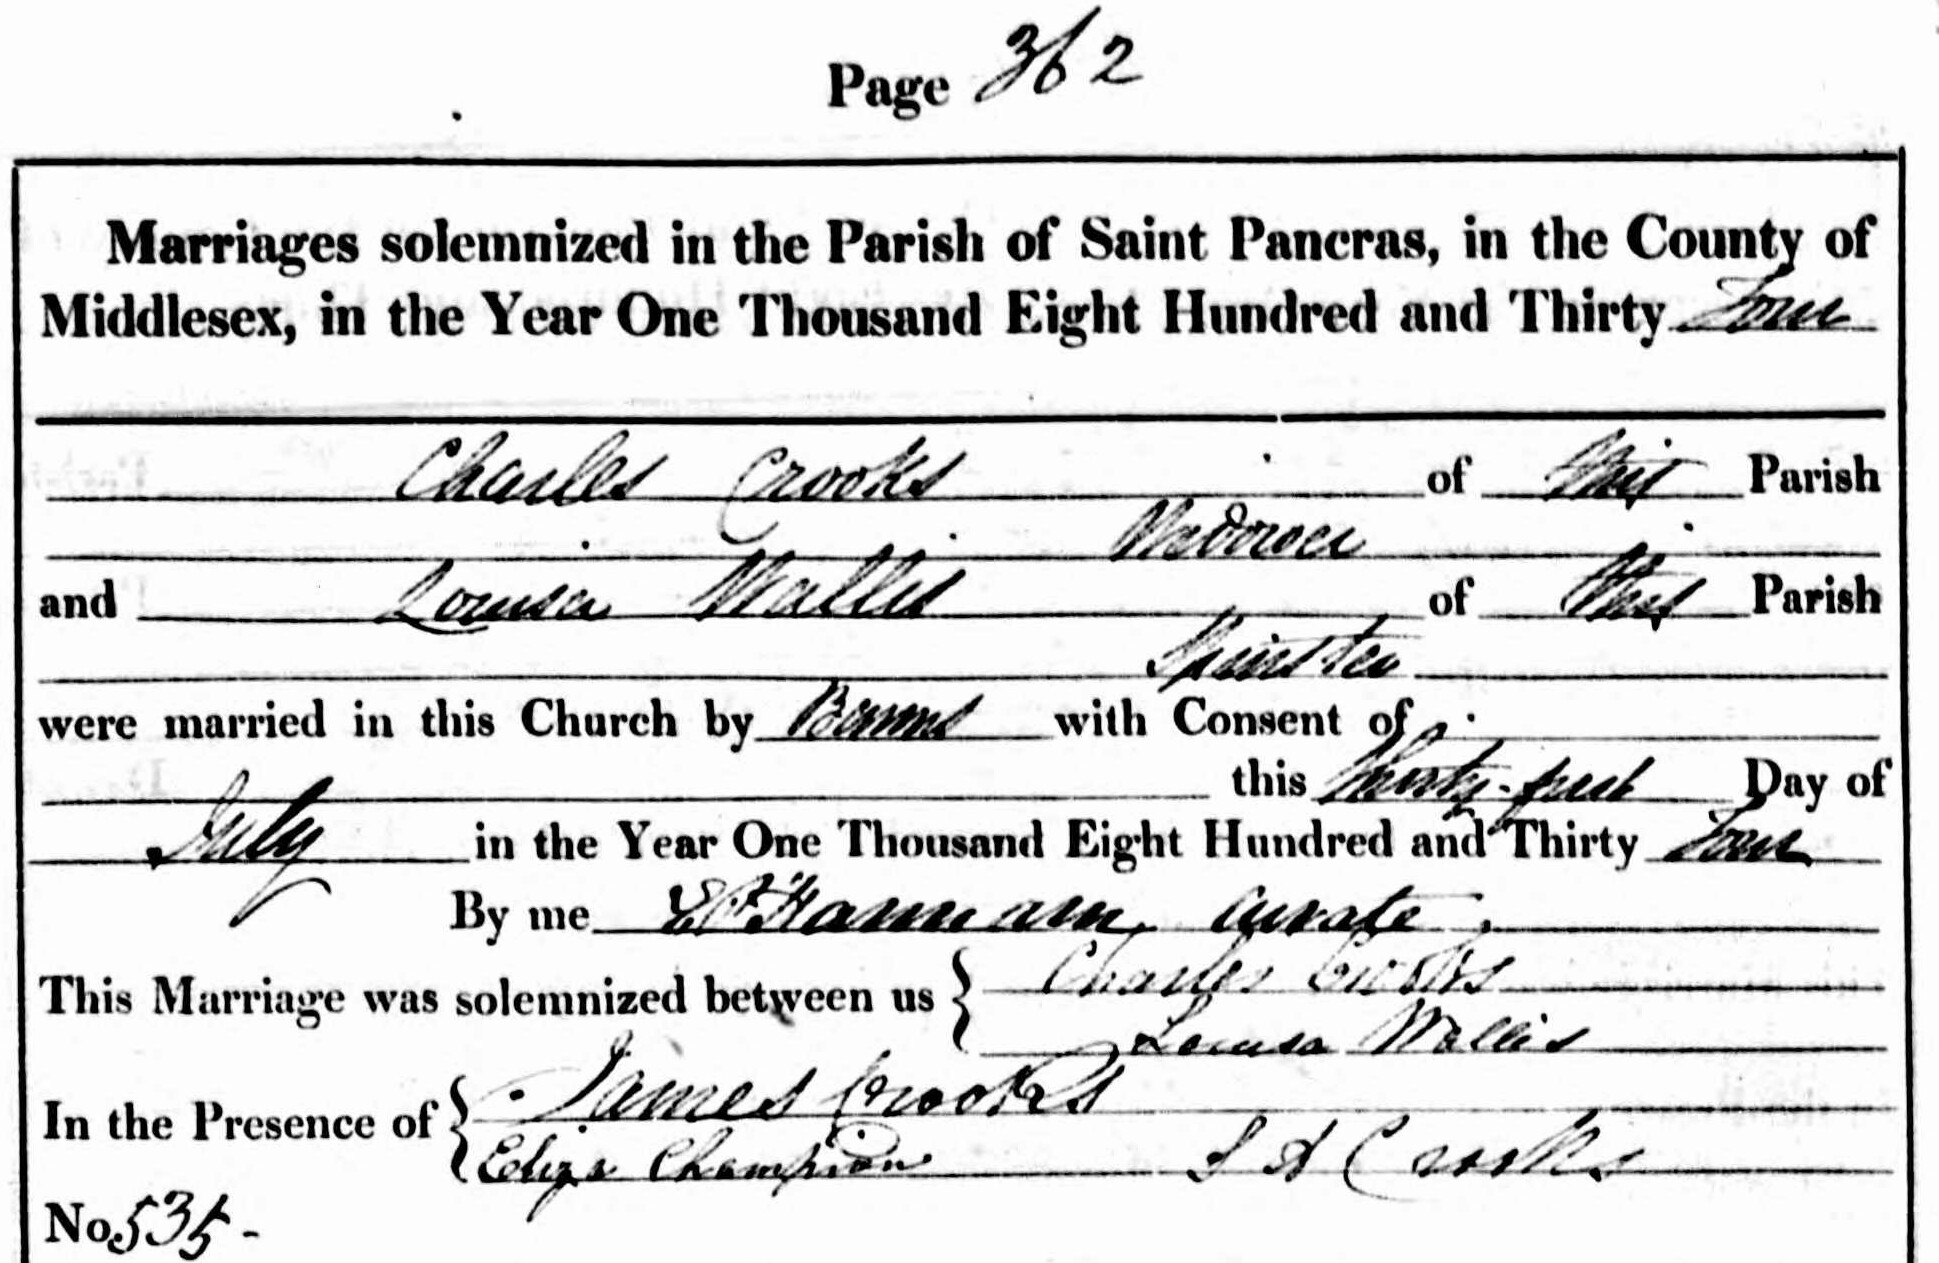 Page 362
Marriages solemnized in the Parish of Saint Pancras, in the County of
Middlesex, in the Year One Thousand Eight Hundred and Thirty Four
Charles Crooks of this Parish
Widower
and Louisa Wallis of this Parish
Spinster
were married in this Church by Banns with Consent of
this thirty-first Day of
July in the Year One Thousand Eight Hundred and Thirty Four
By me Hannam Curate
This Marriage was solemnized between us { Charles Crooks
Louisa Wallis
In the Presence of { James Crooks
Eliza Champion S A Crooks
No. 535 -